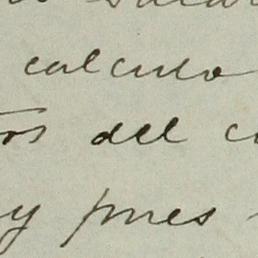 calculo
tos del c
y pues